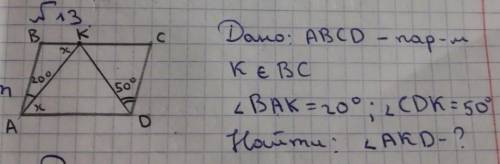 √13.
B K C
x
Дано: ABCD – пар-м
20° 50°
K ∈ BC
x
∠BAK = 20°; ∠CDK = 50°
A D
Найти: ∠AKD – ?